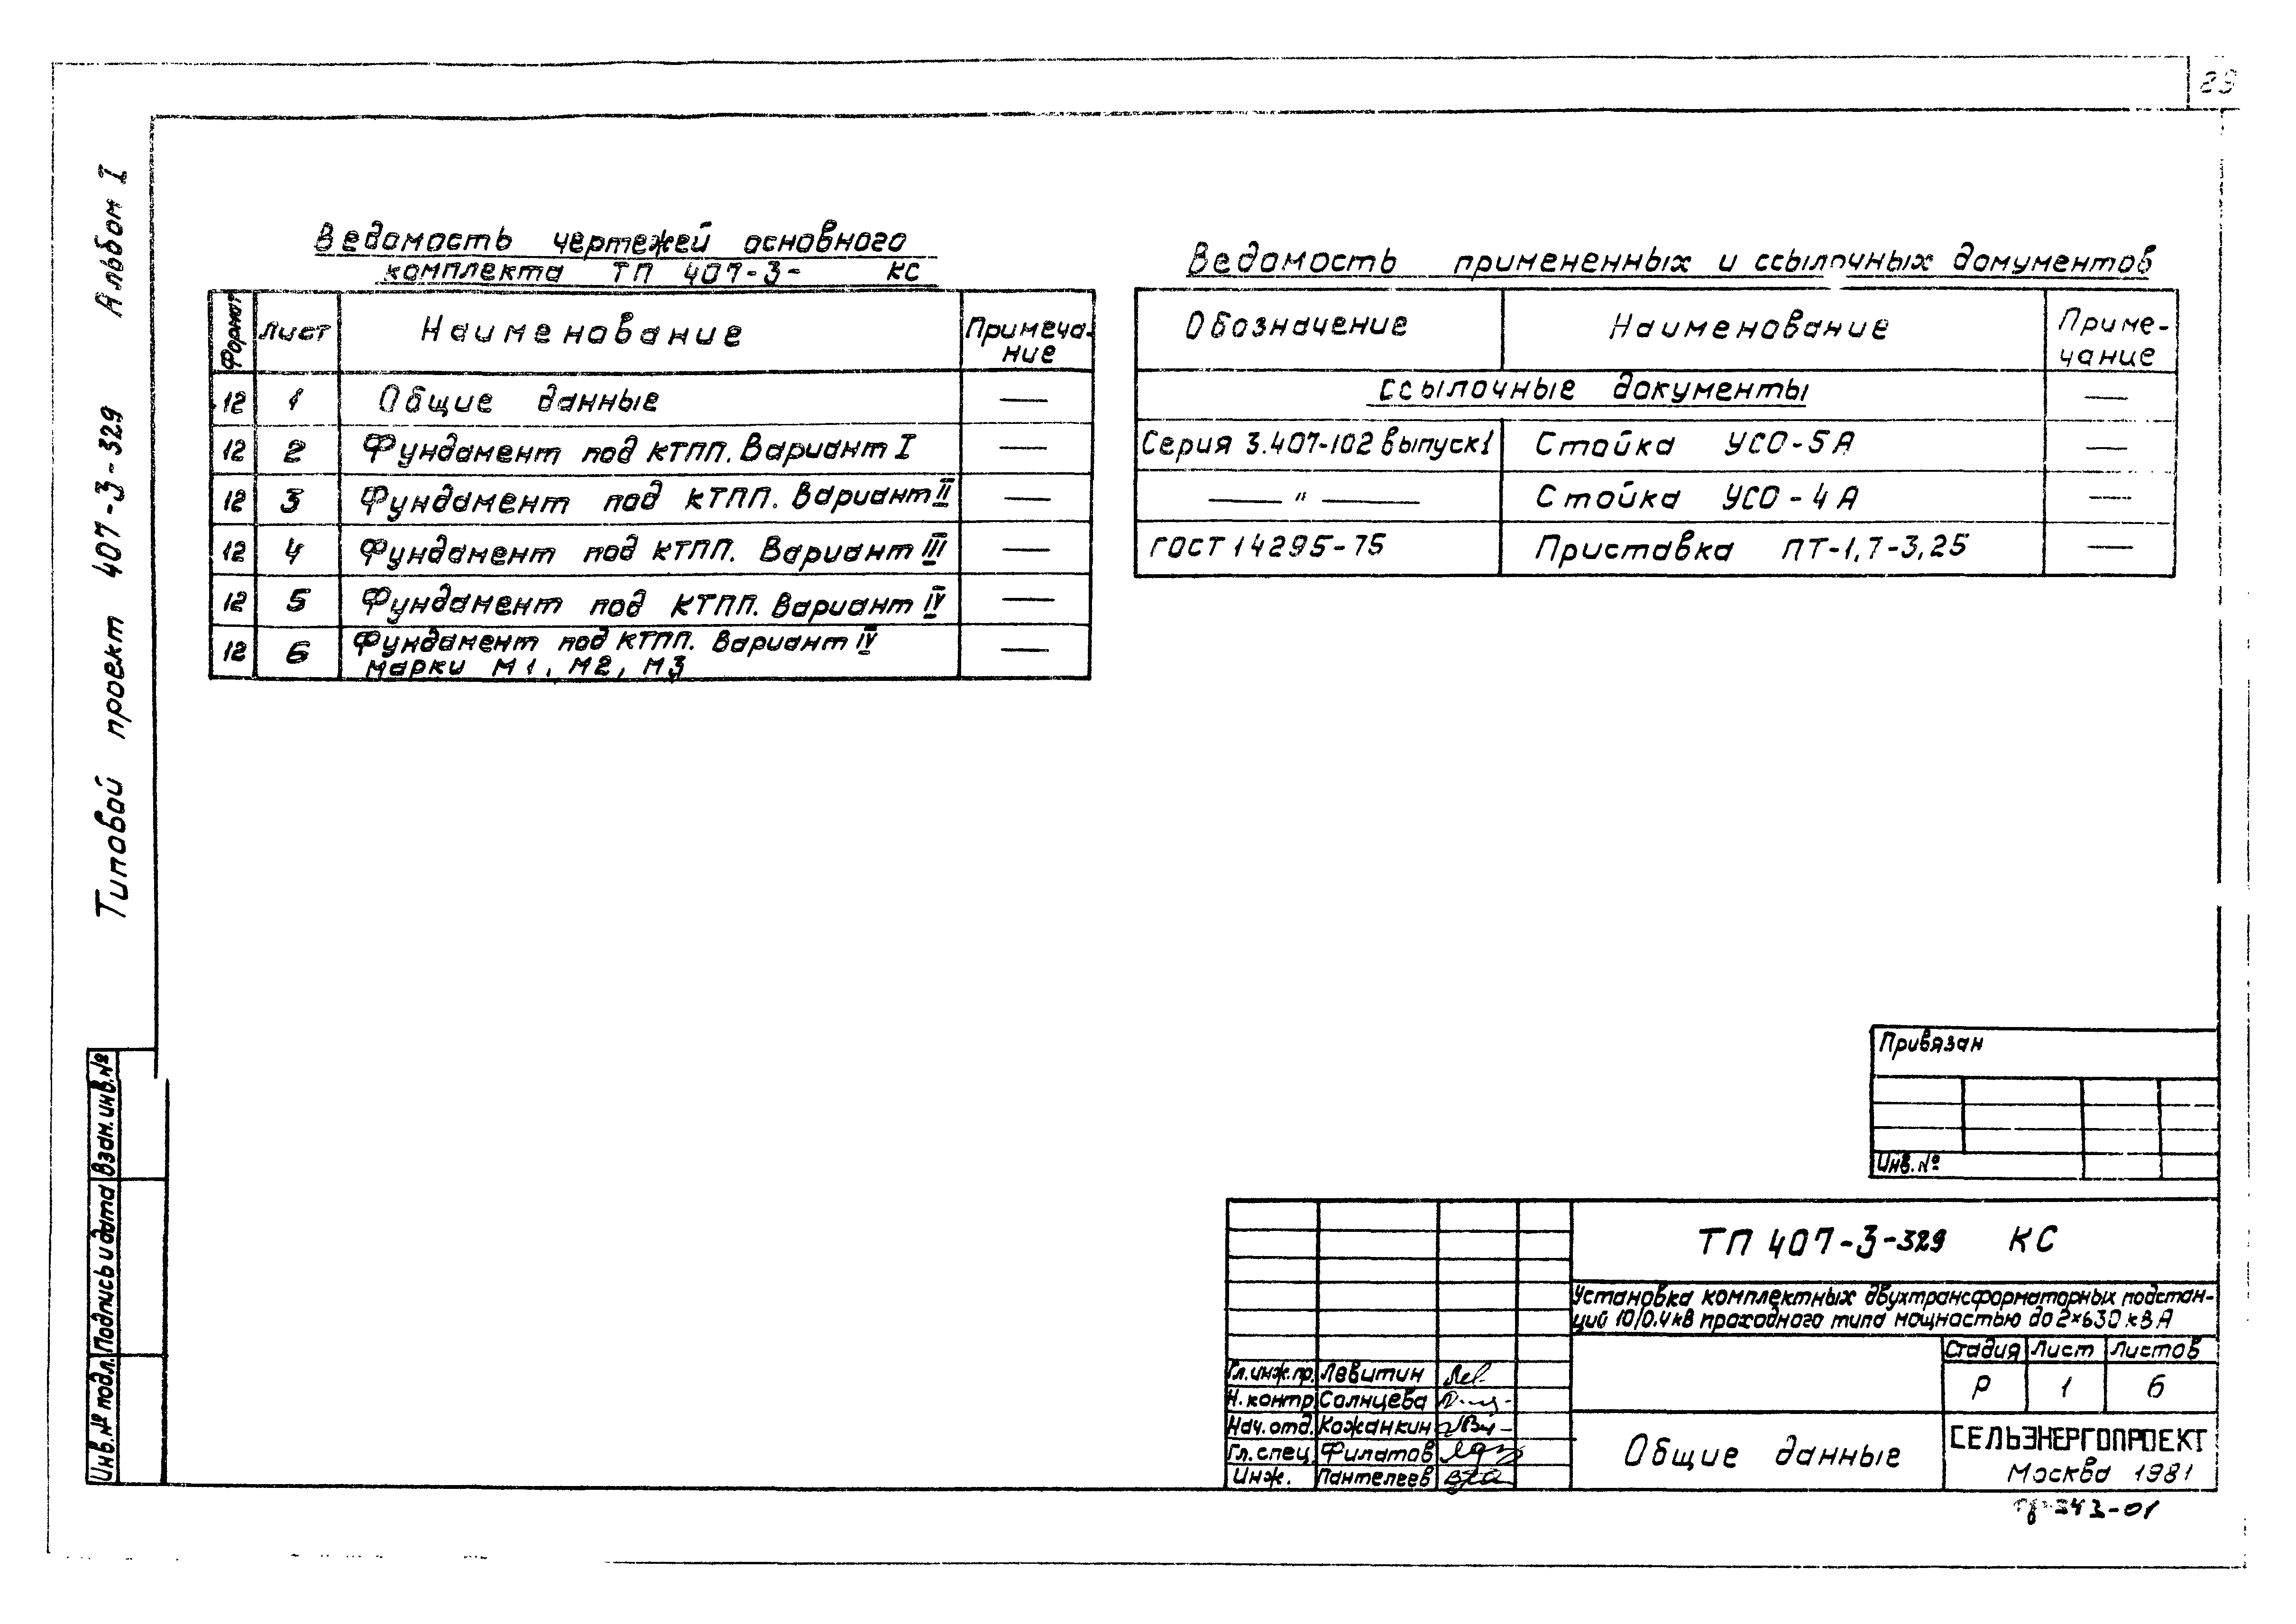 29
Альбом I
Типовой проект 407-3-329
Ведомость чертежей основного
комплекта ТП 407-3- КС
Формат Лист Наименование Примеча-
ние
12 1 Общие данные —
12 2 Фундамент под КТПП. Вариант I —
12 3 Фундамент под КТПП. Вариант II —
12 4 Фундамент под КТПП. Вариант III —
12 5 Фундамент под КТПП. Вариант IV —
12 6 Фундамент под КТПП. Вариант IV
марки М1, М2, М3 —
Ведомость примененных и ссылочных домументов
Обозначение Наименование Приме-
чание
Ссылочные документы —
Серия 3.407-102 выпуск 1 Стойка УСО-5А —
— " — Стойка УСО-4А —
ГОСТ 14295-75 Приставка ПТ-1,7-3,25 —
Привязан
Инв. №
Взам. инв. №
Подпись и дата
Инв. № подл.
ТП 407-3-329 КС
Установка комплектных двухтрансформаторных подстан-
ций 10/0.4 кВ проходного типа мощностью до 2×630 кВА
Стадия Лист Листов
Р 1 6
Гл. инж. пр. Левитин
Н. контр Солнцева
Нач. отд. Кожанкин
Гл. спец. Филатов
Инж. Пантелеев
Общие данные
СЕЛЬЭНЕРГОПРОЕКТ
Москва 1981